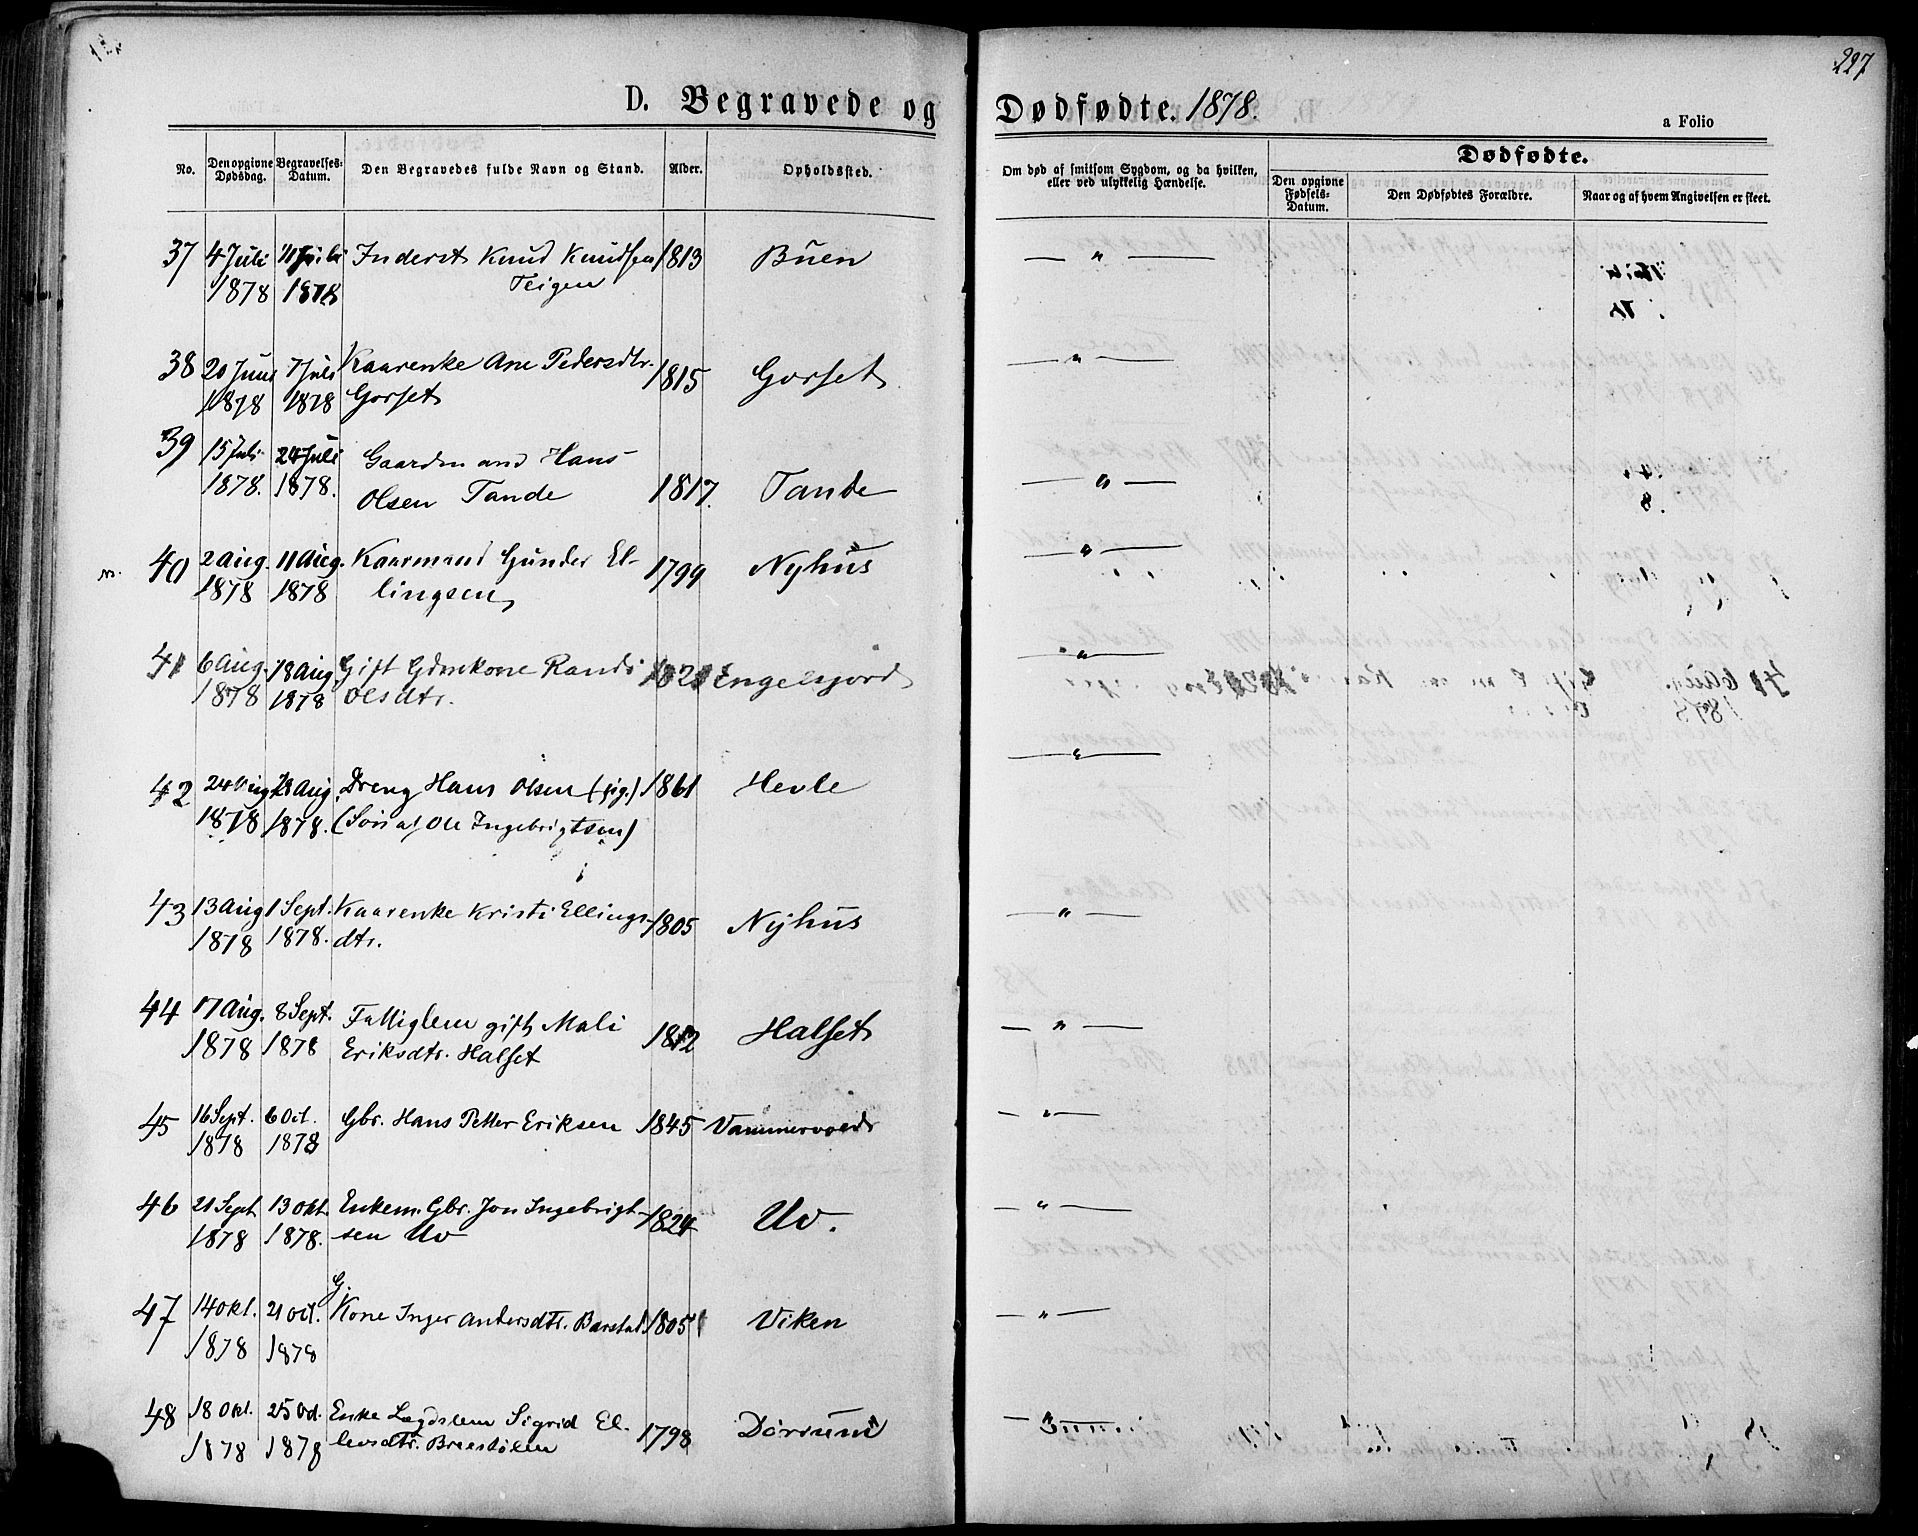 227
D. Begravede og Dødfødte. 1878.
a Folio
No.
Den opgivne Dødsdag.
Begravelses-Datum.
Den Begravedes fulde Navn og Stand.
Alder.
Opholdssted.
Om død af smitsom Sygdom, og da hvilken, eller ved ulykkelig Hændelse.
Dødfødte.
Den opgivne Fødsels-Datum.
Den Dødfødtes Forældre.
Naar og af hvem Angivelsen er skeet.
37 4 Juli 11 Juli Inderst Knud Knudsen 1813 Buen — " —
1878 1878 Teigen
38 20 Juni 7 Juli Kaarenke Ane Pedersdtr. 1815 Gorset — " —
1878 1878 Gorset
39 15 Juli 24 Juli Gaardmand Hans
1878. 1878. Olsen Tande 1817. Tande — " —
40 2 Aug. 11 Aug. Kaarmand Gunder El- 1799 Nyhus — " —
1878 1878 lingsen
41 6 Aug. 18 Aug Gift Gdmkone Randi 1821 Engelsjord — " —
1878 1878 Olsdtr.
42 24 Aug 28 Aug Dreng Hans Olsen (gig.) 1861 Hevle — " —
1878 1878. (Søn af Ole Ingebrigtsen)
43 13 Aug 1 Sept. Kaarenke Kristi Ellings- 1805 Nyhus — " —
1878 1878. dtr.
44 17 Aug. 8 Sept. Fattiglem gift Mali 1812 Halset — " —
1878 1878 Eriksdtr. Halset
45 16 Sept. 6 Oct. Gbr. Hans Petter Eriksen 1845 Vammervold — " —
1878 1878
46 21 Sept 13 Okt. Enkem. Gbr. Jon Ingebrigt- 1824 Uv. — " —
1878 1878. sen Uv
G.
47 14 Okt. 21 Oct. Kone Inger Andersdtr. 1805 Viken — " —
1878 1878
48 18 Okt. 25 Oct. Enke Lægdslem Sigrid El- 1798 Dørrum — " —
1878 1878 levsdtr.